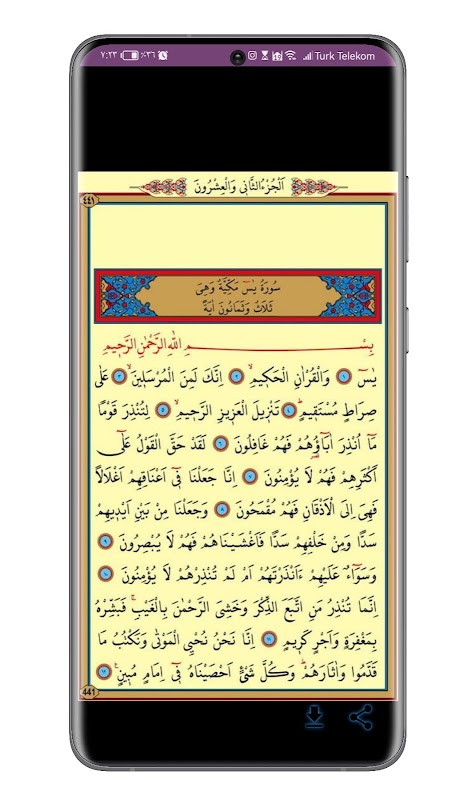 ٧:٢٣ ٪٣٦ Turk Telekom
اَلْجُزْءُ الثَّانِى وَالْعِشْرُونَ
٤٤١
سُورَةُ يٰسٓ مَكِّيَّةٌ وَهِىَ
ثَلَاثٌ وَثَمَانُونَ اٰيَةً
بِسْمِ اللّٰهِ الرَّحْمٰنِ الرَّحِيمِ
يٰسٓ ۚ ١ وَالْقُرْاٰنِ الْحَكِيمِۙ ٢ اِنَّكَ لَمِنَ الْمُرْسَلِينَۙ ٣ عَلٰى
صِرَاطٍ مُسْتَقِيمٍۜ ٤ تَنْزِيلَ الْعَزِيزِ الرَّحِيمِۙ ٥ لِتُنْذِرَ قَوْمًا
مَٓا اُنْذِرَ اٰبَٓاؤُ۬هُمْ فَهُمْ غَافِلُونَ ٦ لَقَدْ حَقَّ الْقَوْلُ عَلٰٓى
اَكْثَرِهِمْ فَهُمْ لَا يُؤْمِنُونَ ٧ اِنَّا جَعَلْنَا فٓى اَعْنَاقِهِمْ اَغْلَالًا
فَهِىَ اِلَى الْاَذْقَانِ فَهُمْ مُقْمَحُونَ ٨ وَجَعَلْنَا مِنْ بَيْنِ اَيْدِيهِمْ
سَدًّا وَمِنْ خَلْفِهِمْ سَدًّا فَاَغْشَيْنَاهُمْ فَهُمْ لَا يُبْصِرُونَ ٩
وَسَوَٓاءٌ عَلَيْهِمْ ءَاَنْذَرْتَهُمْ اَمْ لَمْ تُنْذِرْهُمْ لَا يُؤْمِنُونَ ١٠
اِنَّمَا تُنْذِرُ مَنِ اتَّبَعَ الذِّكْرَ وَخَشِىَ الرَّحْمٰنَ بِالْغَيْبِۚ فَبَشِّرْهُ
بِمَغْفِرَةٍ وَاَجْرٍ كَرِيمٍ ١١ اِنَّا نَحْنُ نُحْيِى الْمَوْتٰى وَنَكْتُبُ مَا
قَدَّمُوا وَاٰثَارَهُمْۜ وَكُلَّ شَىْءٍ اَحْصَيْنَاهُ فٓى اِمَامٍ مُبِينٍ۟ ١٢
441